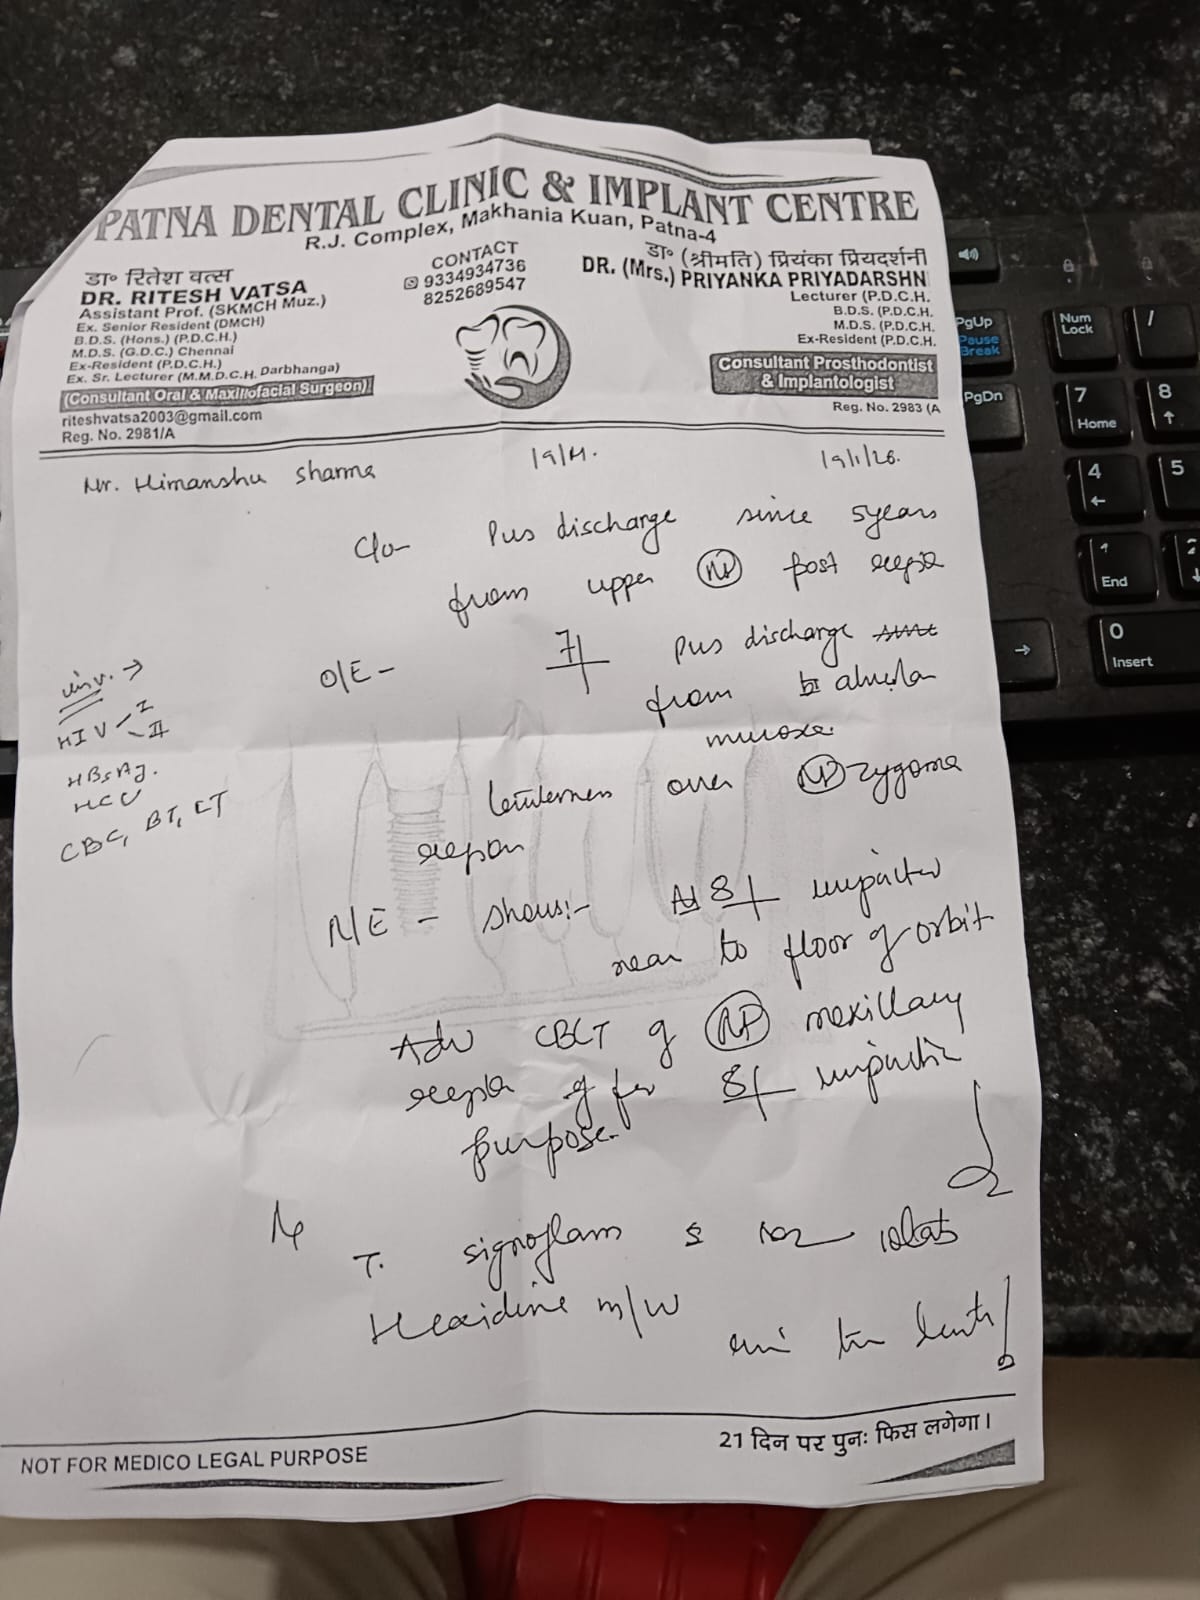 PATNA DENTAL CLINIC & IMPLANT CENTRE
R.J. Complex, Makhania Kuan, Patna-4
डा० रितेश वत्स
DR. RITESH VATSA
Assistant Prof. (SKMCH Muz.)
Ex. Senior Resident (DMCH)
B.D.S. (Hons.) (P.D.C.H.)
M.D.S. (G.D.C.) Chennai
Ex-Resident (P.D.C.H.)
Ex. Sr. Lecturer (M.M.D.C.H. Darbhanga)
(Consultant Oral & Maxillofacial Surgeon)
riteshvatsa2003@gmail.com
Reg. No. 2981/A
CONTACT
9334934736
8252689547
डा० (श्रीमति) प्रियंका प्रियदर्शनी
DR. (Mrs.) PRIYANKA PRIYADARSHN
Lecturer (P.D.C.H.
B.D.S. (P.D.C.H.
M.D.S. (P.D.C.H.
Ex-Resident (P.D.C.H.
Consultant Prosthodontist
& Implantologist
Reg. No. 2983 (A
Mr. Himanshu Sharma 19/M. 19/1/26.
C/o- Pus discharge since 5years
from upper Rt post region
O/E- 7 Pus discharge
from alveolar
mucosa.
tenderness over Rt zygoma
region
inv. →
HIV - I
- II
HBsAg.
HCV
CBC, BT, CT
R/E - shows:- 8 impacted
near to floor of orbit
Adv CBCT of Rt maxillary
region for 8 impaction
purpose.
T. signoflam
Hexidine m/w
NOT FOR MEDICO LEGAL PURPOSE
21 दिन पर पुनः फिस लगेगा।
PgUp
Pause
Break
PgDn
Num
Lock
/
7
Home
8
4
5
1
End
2
0
Insert